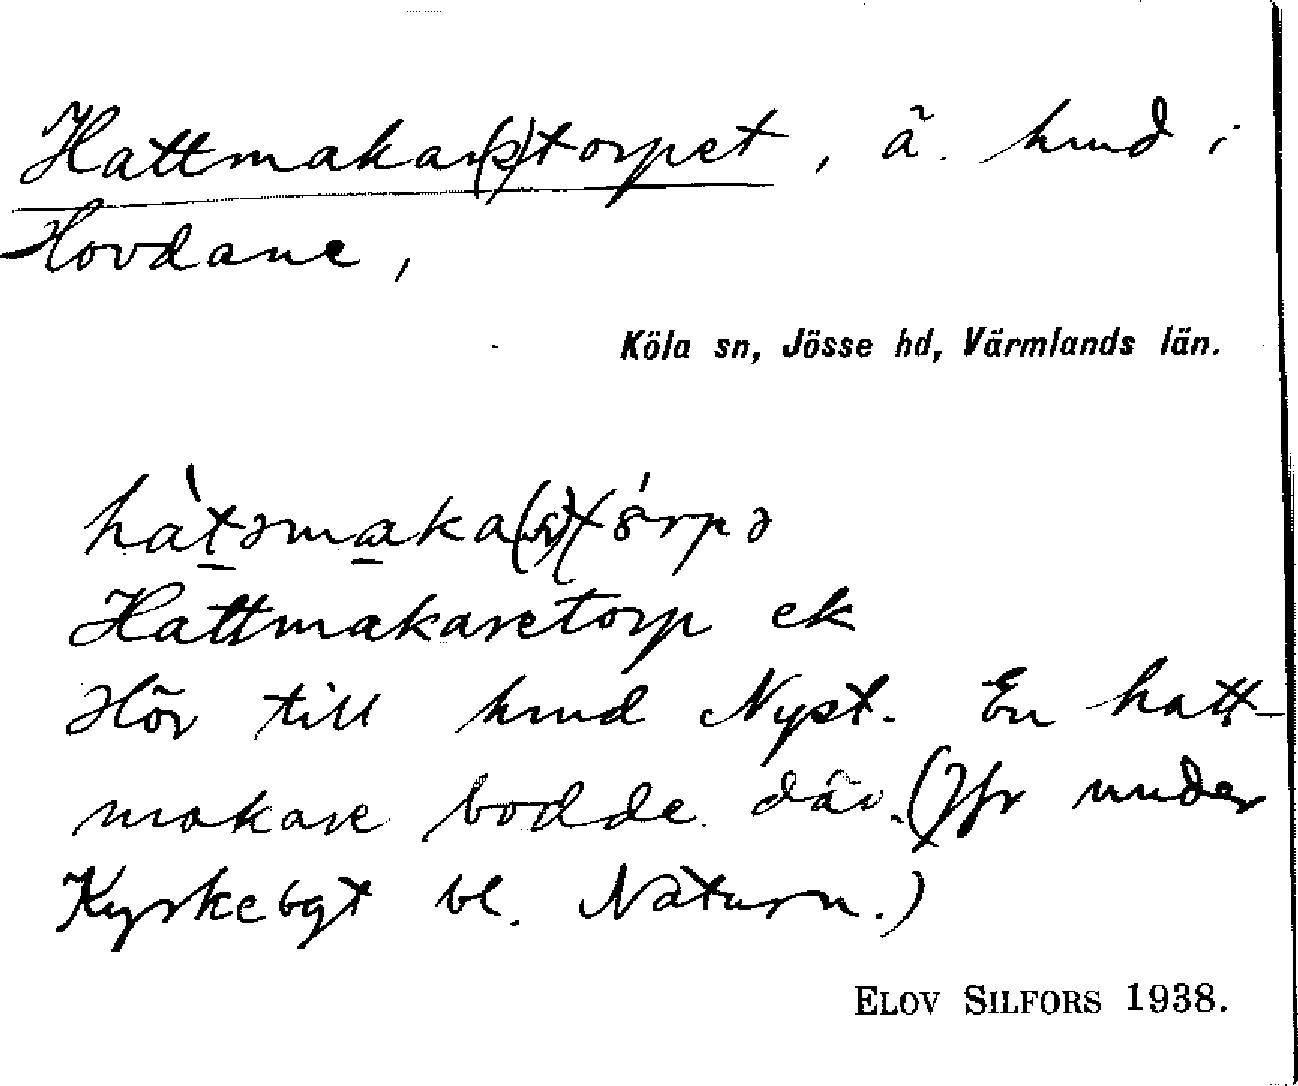 Hattmakar(s)torpet, ä. hmd i
Hovdane,
Köla sn, Jösse hd, Värmlands län.
Hattmakaretorp ek
Hör till hmd Nyst. En hatt-
makare bodde där. (Jfr under
Kyrkebyt bl. Naturn.)
ELOV SILFORS 1938.